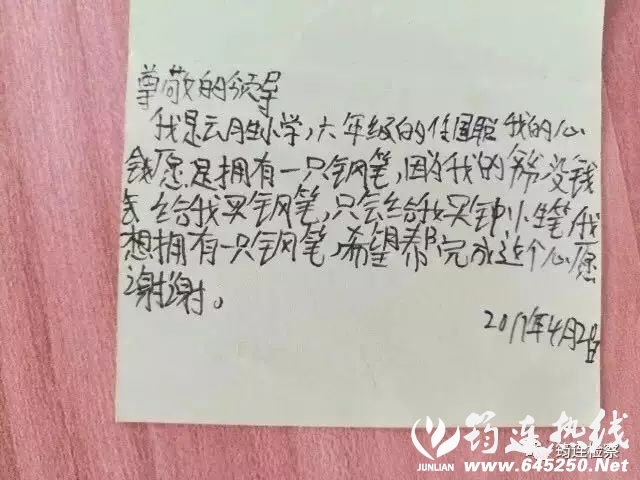 尊敬的领导
我是云胜小学,六年级的任国聪我的心
愿是拥有一只钢笔,因为我的爷爷没钱
给我买钢笔,只会给我买钟小生笔,我
想拥有一只钢笔,希望帮完成这个心愿
谢谢。
2017年4月2日
筠连热线
JUNLIAN
www.645250.Net
筠连检察